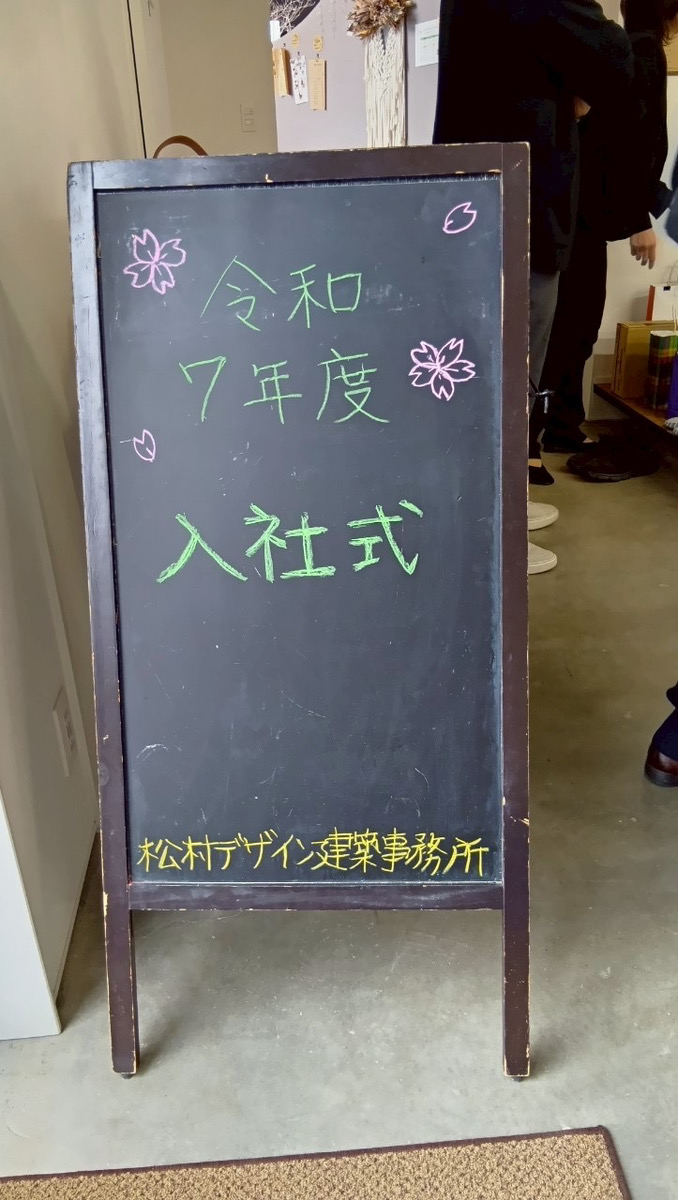 令和
7年度
入社式
松村デザイン建築事務所